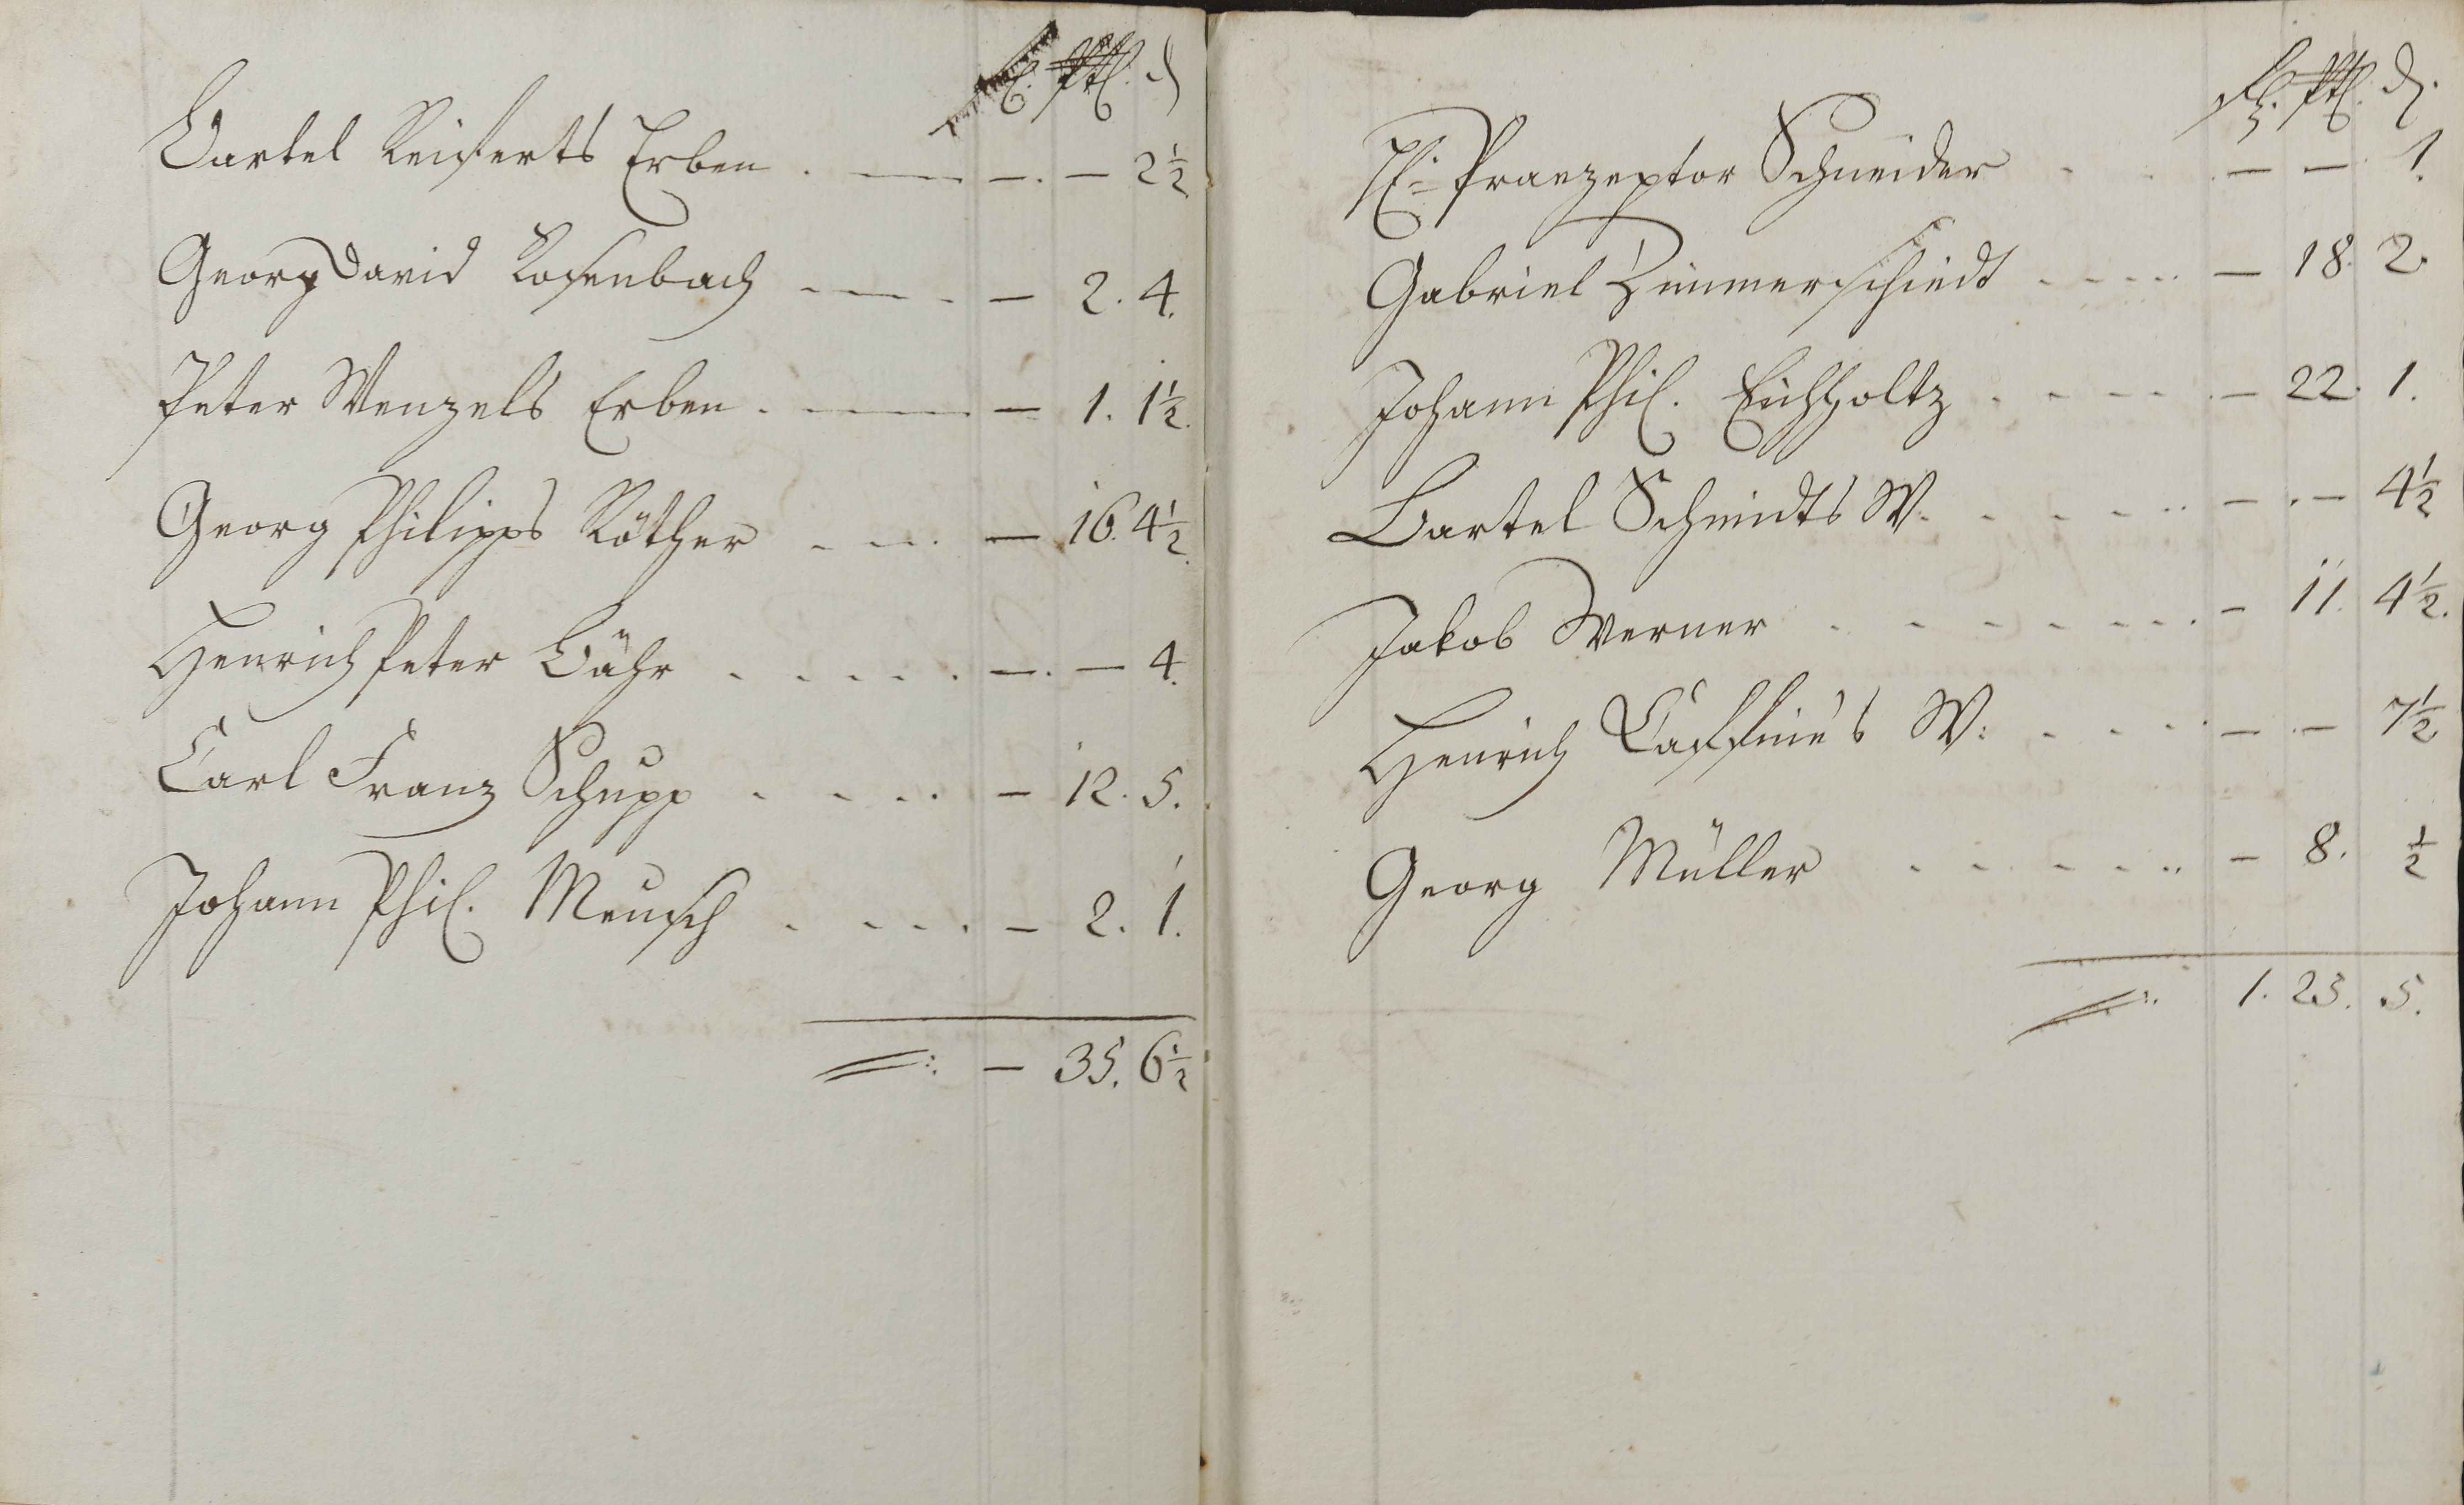 Bartel Reiferts Erben . — — . — 2½
Georg David Rosenbach . — . — 2. 4.
Peter Wenzels Erben . — — 1. 1½.
Georg Philipps Röther . . . — 16. 4½.
Henrich Peter Bähr . . . . . — . — 4.
Carl Franz Schupp . . . . — 12. 5.
Johann Phil. Meusch . . . . — 2. 1.
— 35. 6½
H: Praezeptor Schneider . . . — — 1.
Gabriel Zimmerschiedt . . . . — 18. 2.
Johann Phil. Eichholtz . . . . . — 22. 1.
Bartel Schmidts W. . . . . . — . — 4½
Jakob Werner . . . . . . . — 11. 4½.
Henrich W: . . . . — . — 7½
Georg Müller . . . . . . — 8. ½
1. 23. 5.